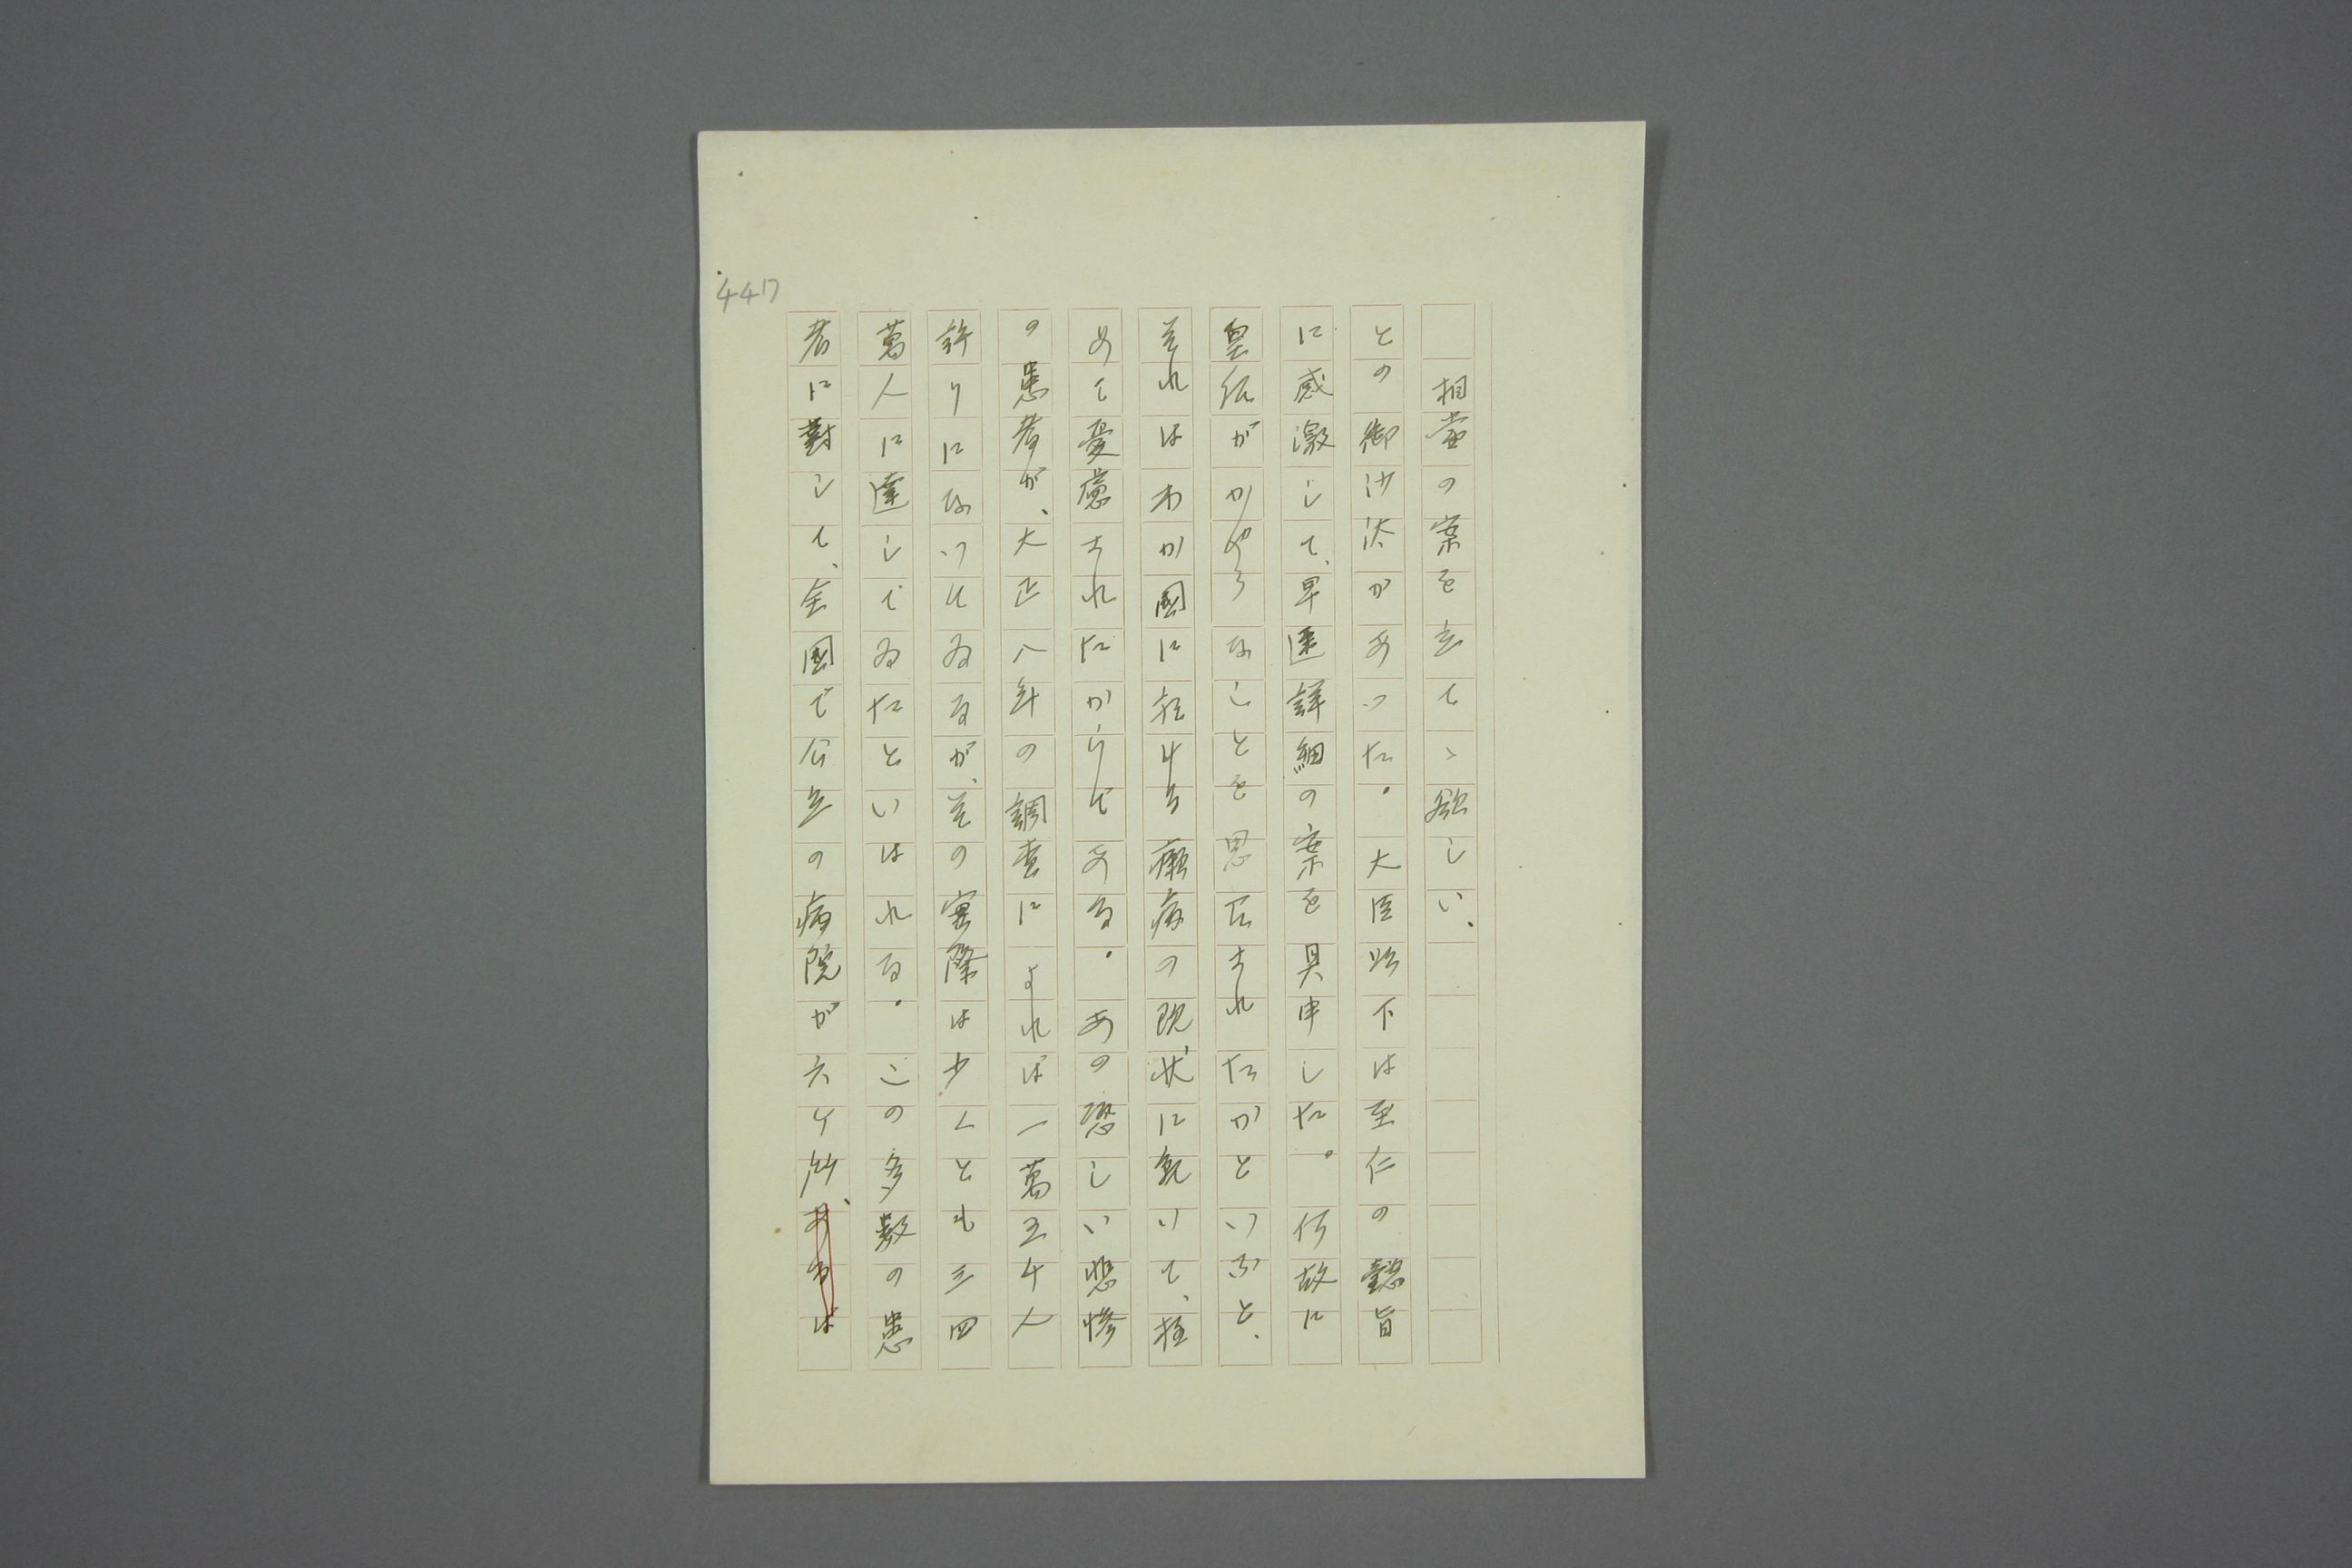 相當の案を立てゝ欲しい、
との御沙汰があつた。大臣以下は至仁の懿旨
に感激して、早速詳細の案を具申した。何故に
皇后がかやうなことを思召されたかといふと、
それはわが國に於ける癩病の現状に就いて、極
めて憂慮されたからである。あの恐しい悲惨
の患者が、大正八年の調査によれば一萬五千人
許りになつてゐるが、その實際は少くとも三四
萬人に達してゐたといはれる。この多数の患
者に對して、全國で公立の病院が六ケ所、あるは
441